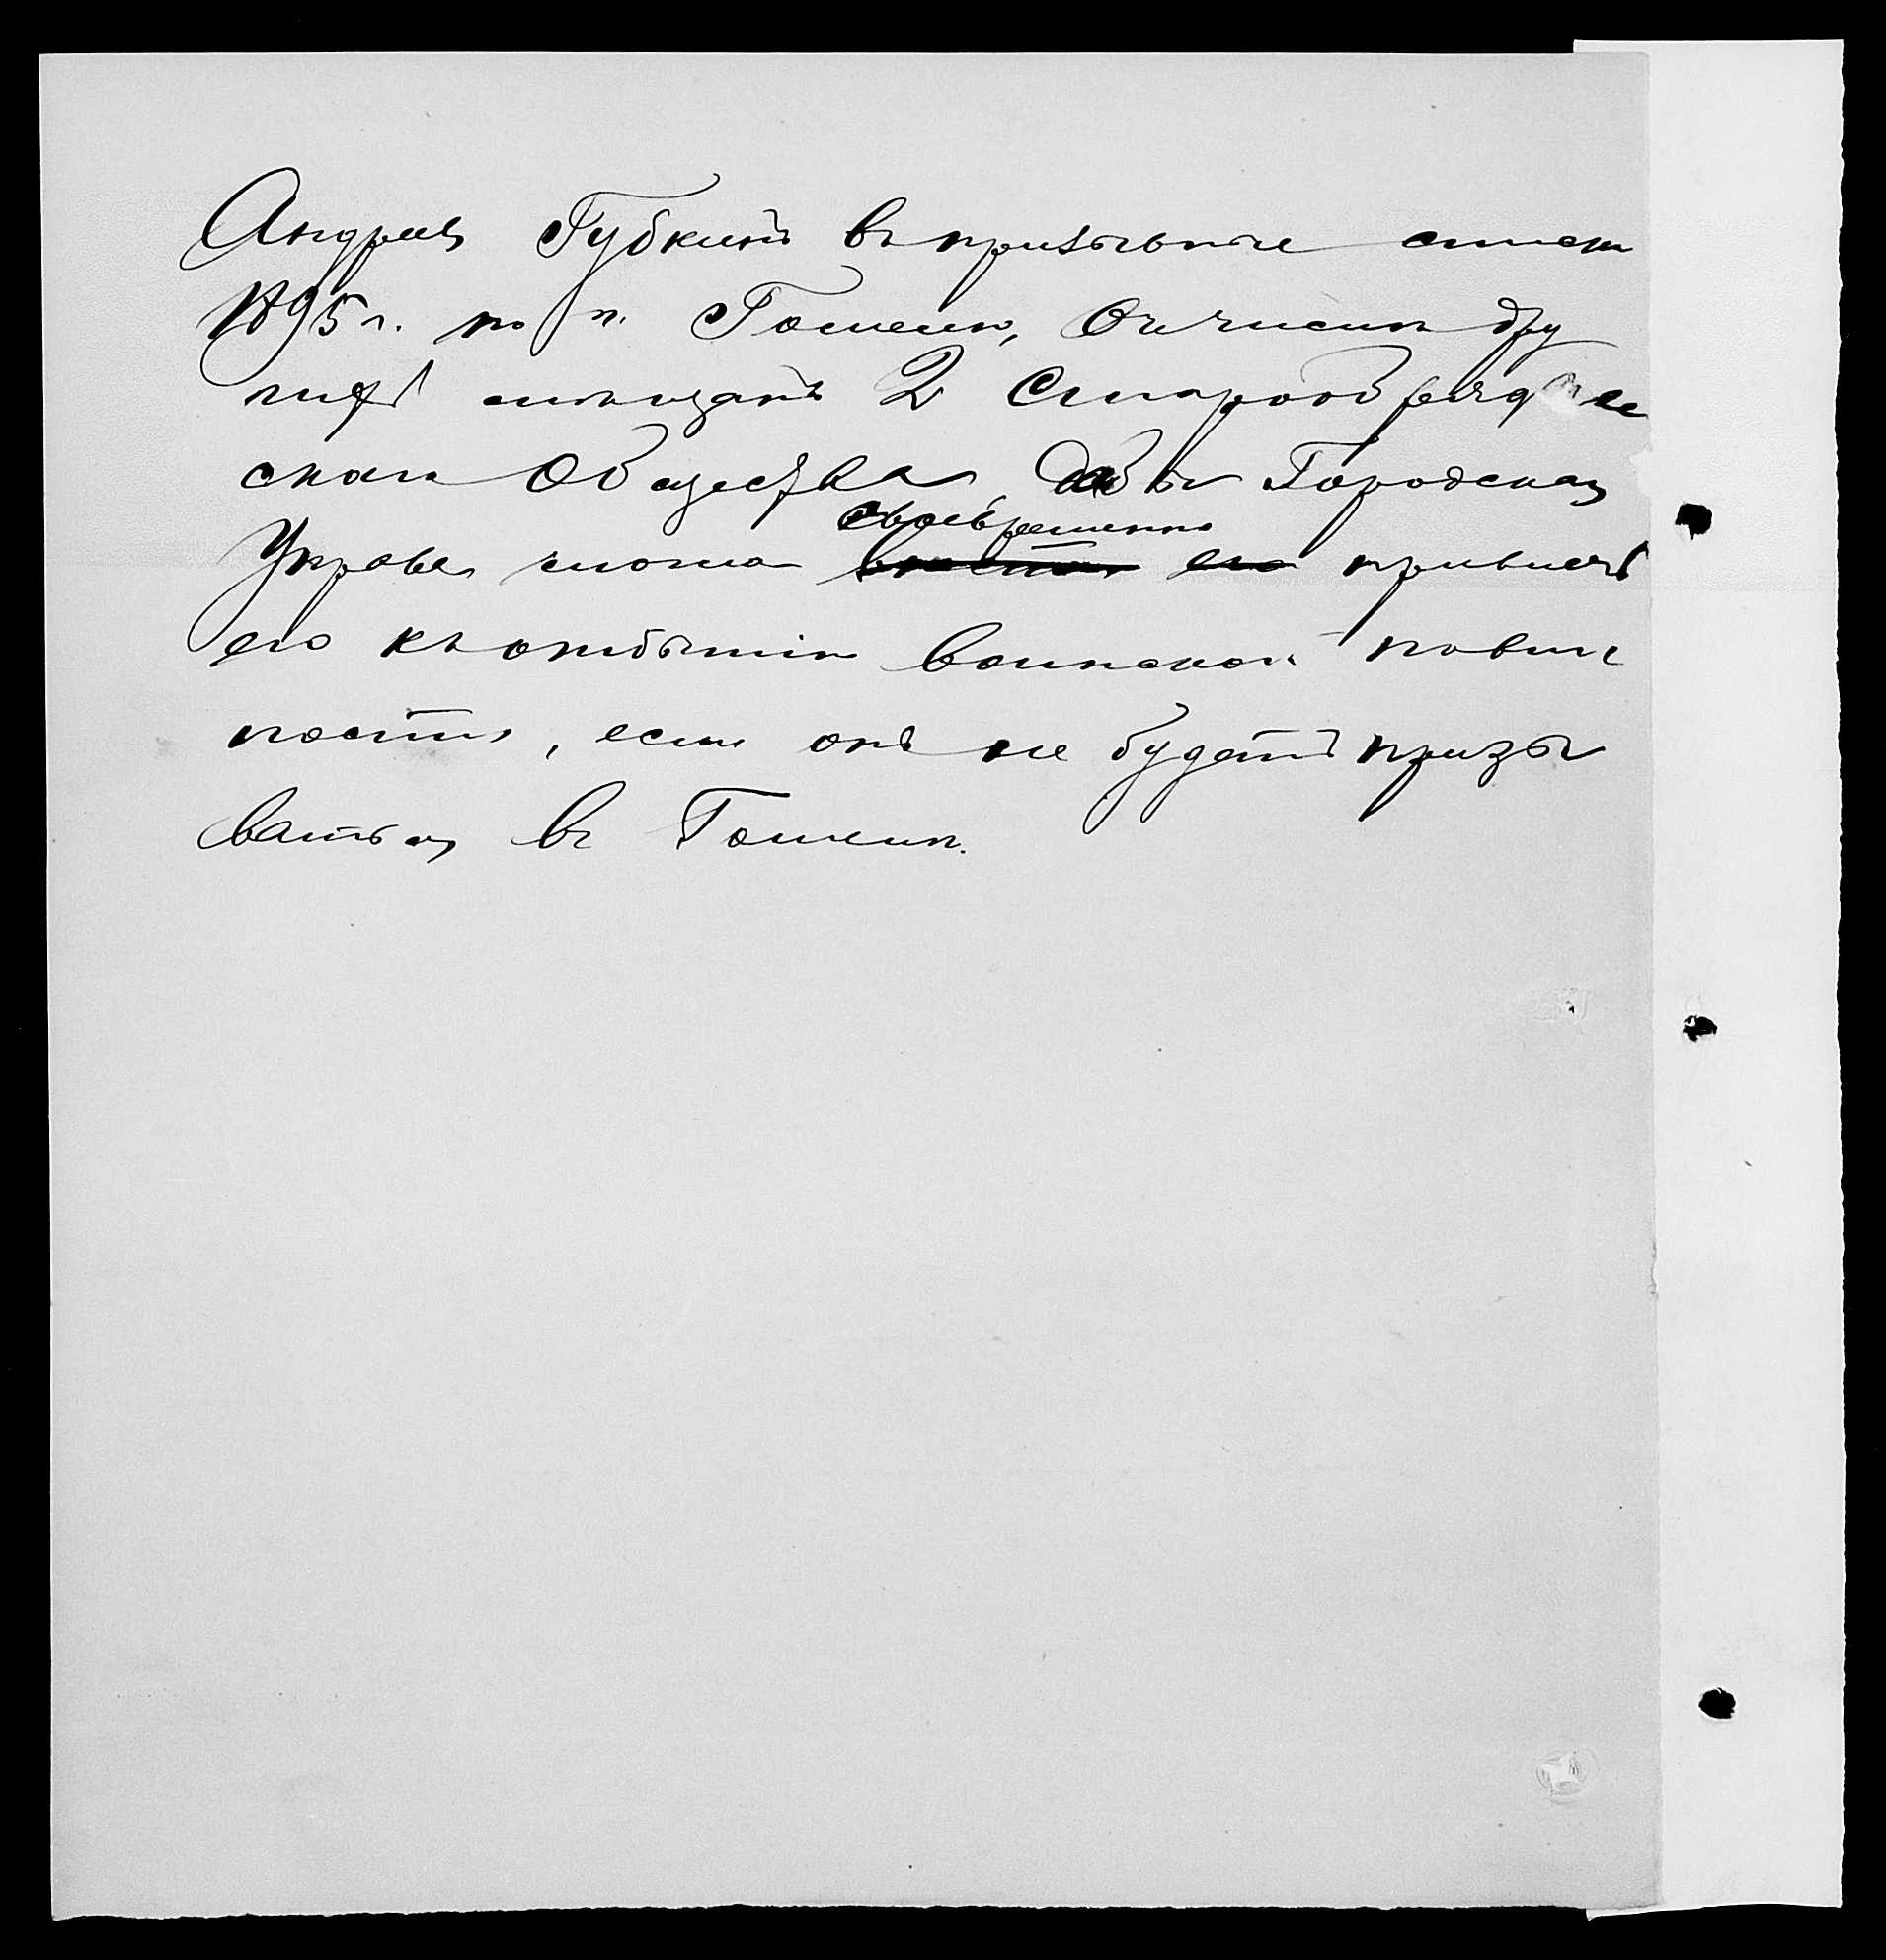 Андрей Губкинъ въ призывные списки
1895 г. по г. Гомелю, въ числѣ дру
гихъ мѣщанъ 2 Старообрядче
скаго Общества, дабы Городская
Управа могла своевременно привлечь
его къ отбытію воинской повин
ности, если онъ не будетъ призы
ваться въ Гомелѣ.